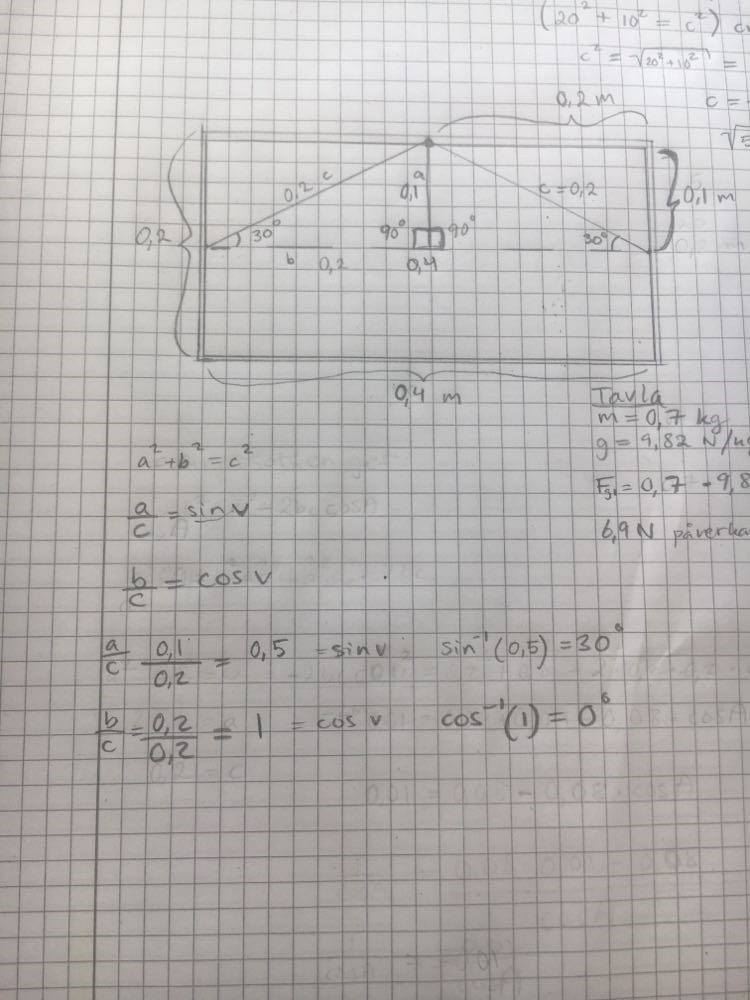 (20² + 10² = c²)
c² = √20²+10² =
c =
0,2 m
0,2 c
a
0,1
c = 0,2
0,1 m
0,2
30°
90°
90°
30°
b 0,2
0,4
0,4 m
Tavla
m = 0,7 kg
g = 9,82 N/kg
0,7 - 9,8
6,9 N påverka
a² + b² = c²
a/c = sin v
b/c = cos v
a/c 0,1/0,2 = 0,5 = sin v, sin⁻¹(0,5) = 30°
b/c = 0,2/0,2 = 1 = cos v cos⁻¹(1) = 0°